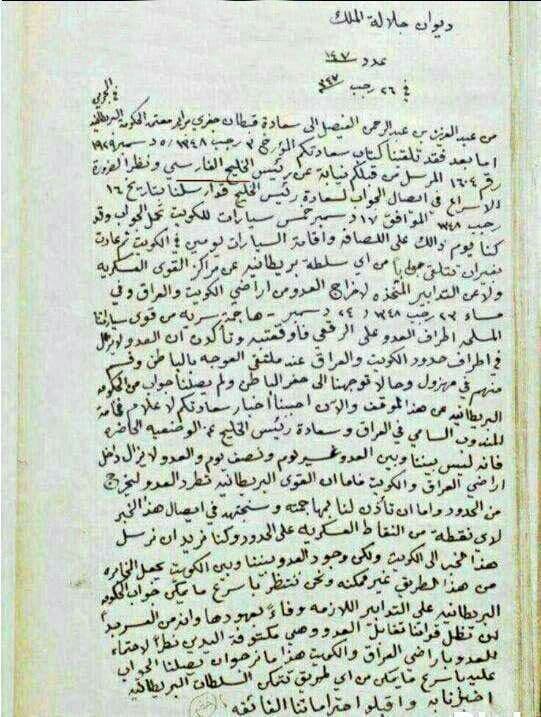 ديوان جلالة الملك
عدد ١٤٧
في ٢٦ رجب
من عبد العزيز بن عبد الرحمن الفيصل الى سعادة قبطان المعتمد
اما بعد فقد تلقينا كتاب سعادتكم المؤرخ ٣ رجب ١٣٤٨ / ٥ دسمبر ١٩٢٩
رقم ١٦٠٤ المرسل من قبلكم نيابة عن رئيس الخليج الفارسي ونظرا لضرورة
الاسراع في ايصال الجواب لسعادة رئيس الخليج فقد ارسلنا بتاريخ ١٦
رجب ١٣٤٨ الموافق ١٧ دسمبر خمس سيارات للكويت تحمل الجواب وقد
كنا يوم ذالك على اللصافة واقامة السيارات يومين في الكويت ثم عادت
بغير ان نتلقى جوابا من اي سلطة بريطانية عن مراكز القوى العسكرية
ولا عن التدابير المتخذه لاخراج العدو من اراضي الكويت والعراق وفي
مساء ٢٣ رجب ١٣٤٨ / ٢٤ دسمبر - هاجمة سرية من قوى سياراتنا
المسلحه اطراف العدو على الرقعي فأوقعت وتأكدن ان العدو لا يزال
في اطراف حدود الكويت والعراق عند ملتقى العوجه بالباطن وقسم
منهم في مهزول وحالا توجهنا الى حفر الباطن ولم يصلنا جواب من الحكومه
البريطانيه عن هذا الموقف والان احببنا اخبار سعادتكم لاعلام فخامة
المندوب السامي في العراق وسعادة رئيس الخليج عن الوضعيه الحاضره
فانه ليس بيننا وبين العدو غير يوم ونصف يوم والعدو لا يزال داخل
اراضي العراق والكويت فاما ان القوى البريطانيه تطرد العدو ليخرج
من الحدود واما ان تأذن لنا بمهاجمته وسنجتهد في ايصال هذا الخبر
لاي نقطة من النقاط العسكريه على الحدود وكنا نريد ان نرسل
هذا الخبر الى الكويت ولكن وجود العدو بيننا وبين الكويت يجعل المخابره
من هذا الطريق غير ممكنه ونحن ننتظر باسرع ما يمكن جواب الحكومه
البريطانيه على التدابير اللازمه وفاءً بعهودها وانه من
ان تظل قواتنا تقابل العدو وهي مكتوفة اليدي نظراً لاحتماء
العدو باراضي العراق والكويت هذا ما نرجو ان يصلنا الجواب
عليه باسرع ما يمكن من اي طريق تتمكن السلطات البريطانية
اخبارنا به واقبلوا احتراماتنا الفائقه